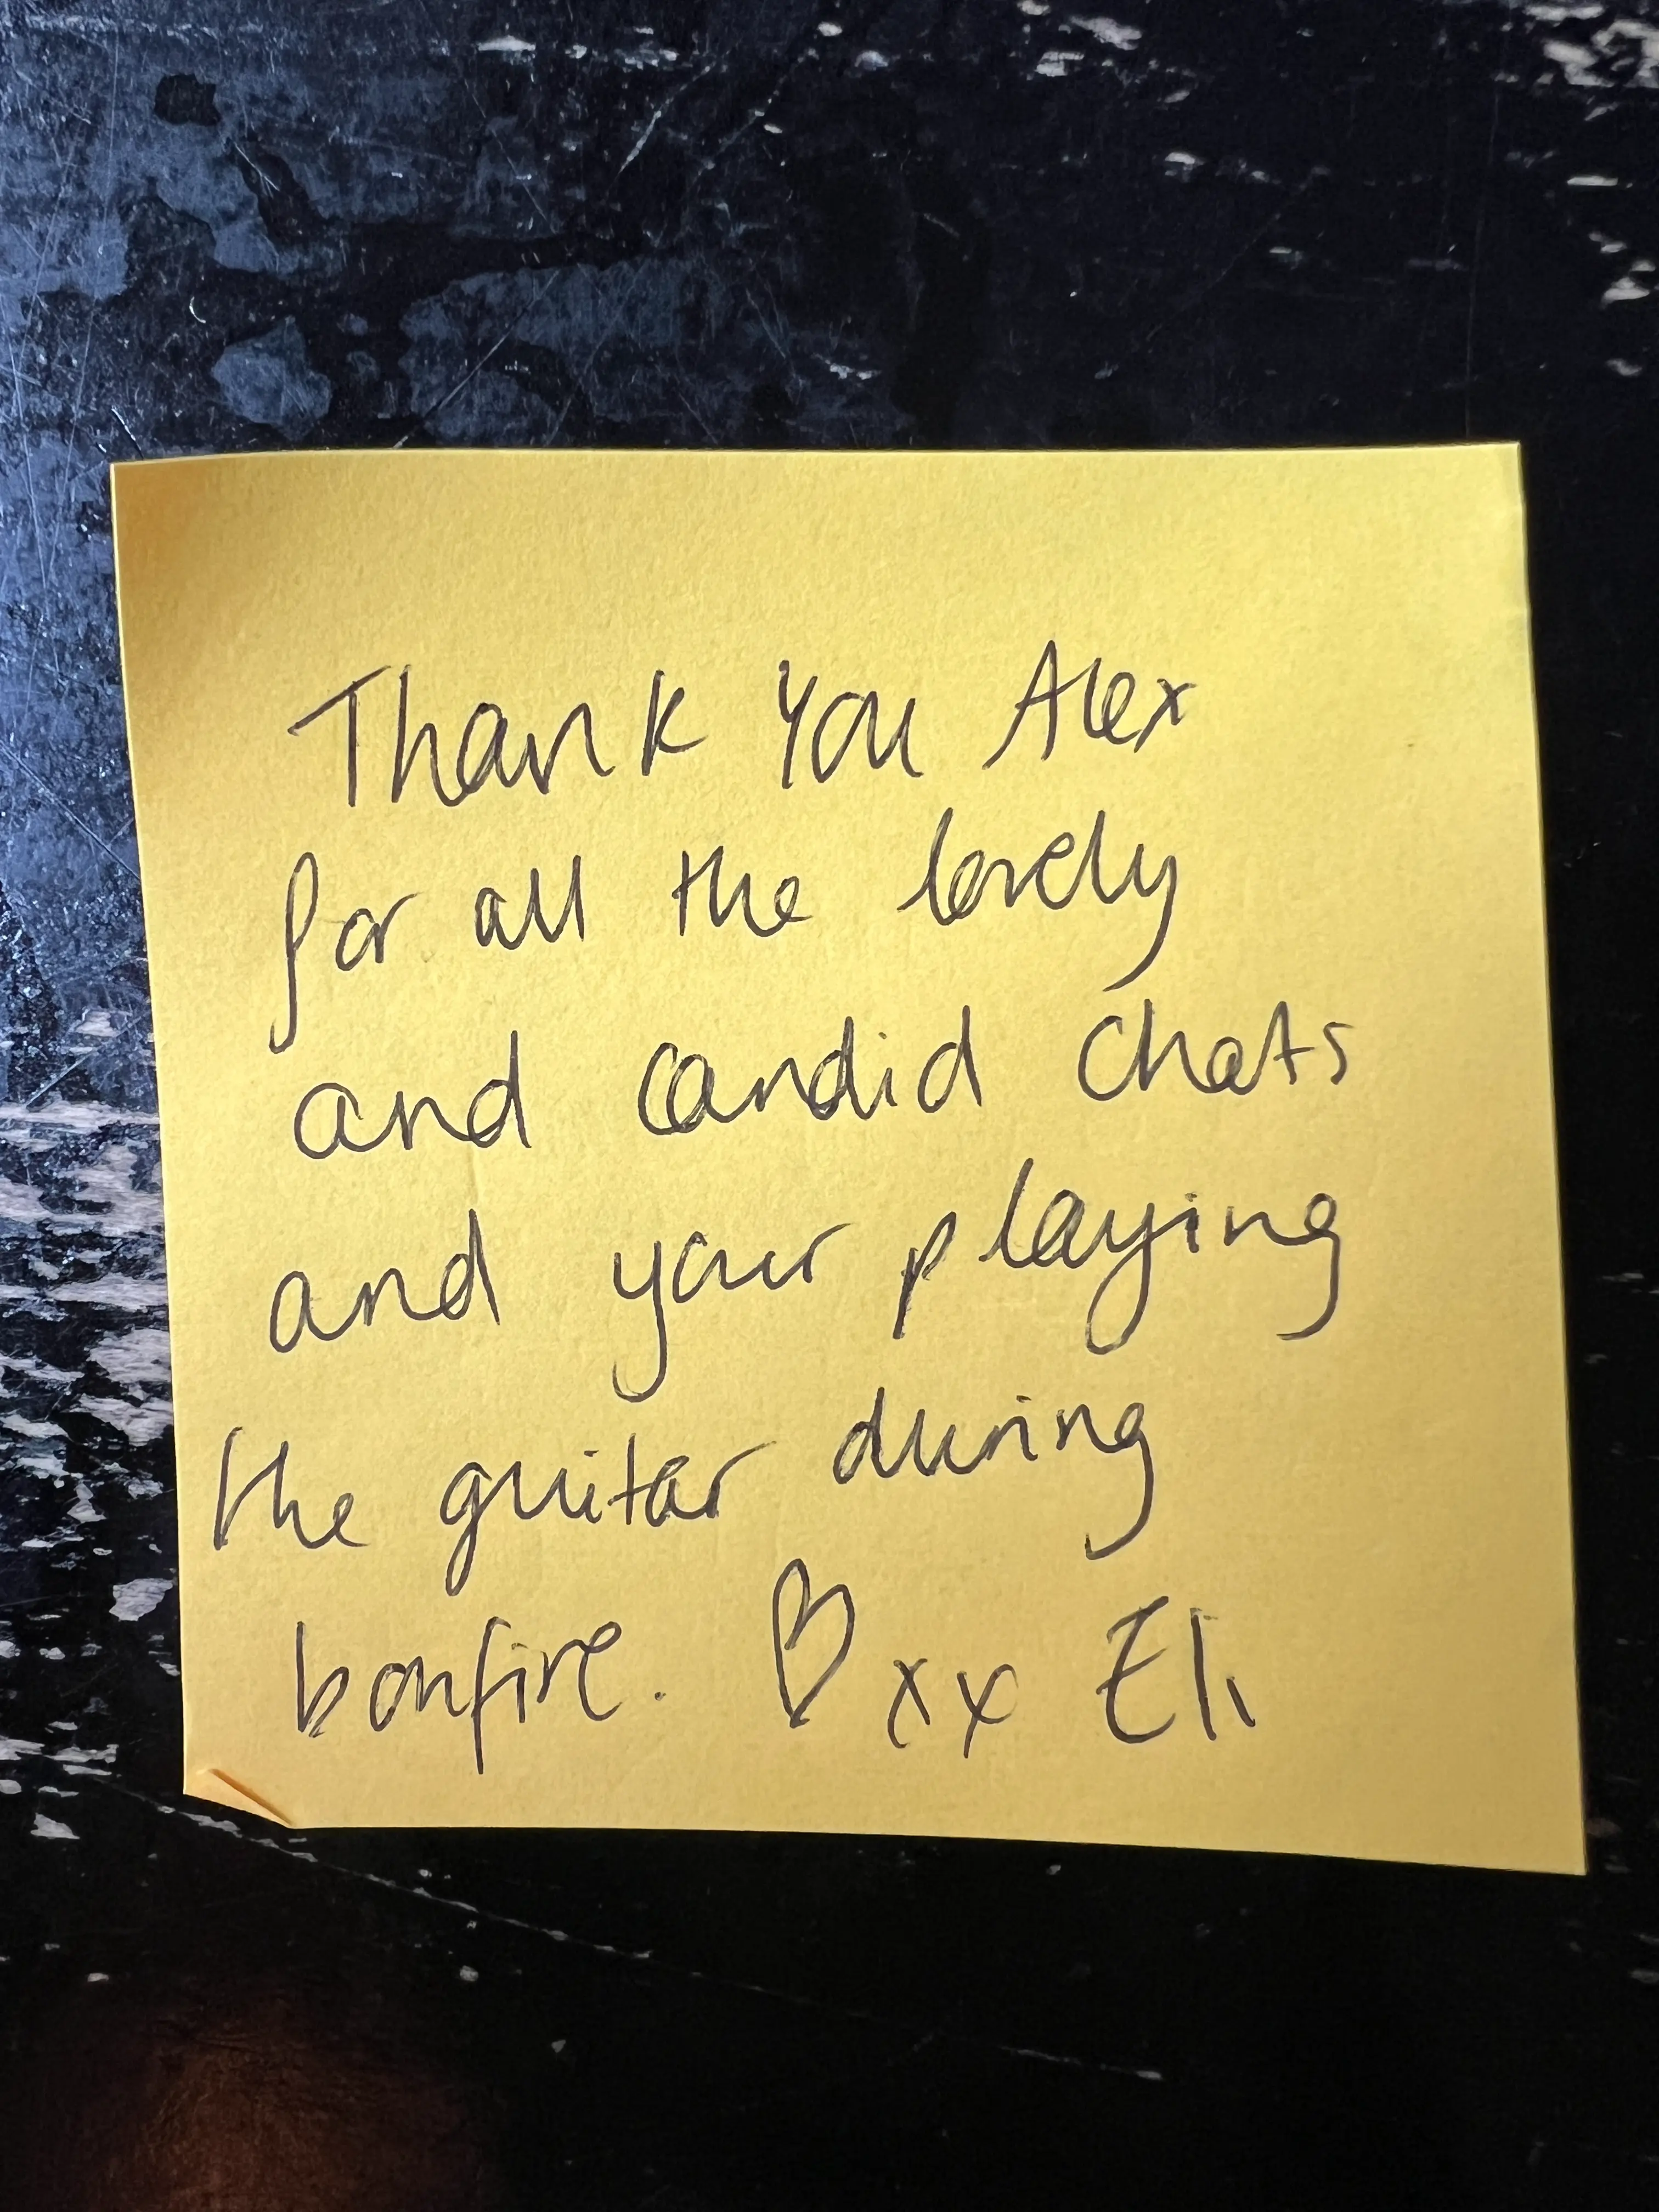 Thank you Alex
for all the lovely
and candid chats
and your playing
the guitar during
bonfire. ♡ xx Eli